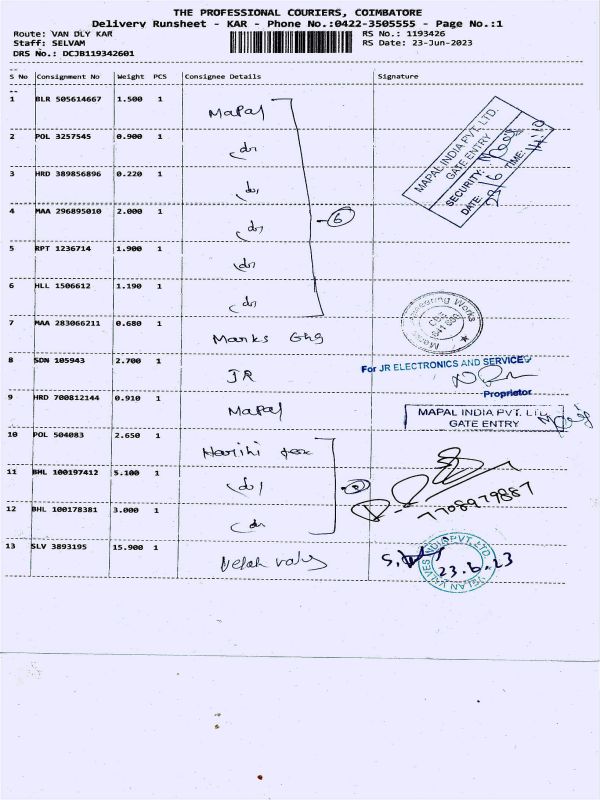 THE PROFESSIONAL COURIERS, COIMBATORE
Delivery Runsheet - KAR - Phone No.:0422-3505555 - Page No.:1
Route: VAN DLY KAR
Staff: SELVAM
DRS No.: DCJB119342601
RS No.: 1193426
RS Date: 23-Jun-2023
S No Consignment No Weight PCS Consignee Details Signature
1 BLR 505614667 1.500 1 Mapal
2 POL 3257545 0.900 1 do
3 HRD 389856896 0.220 1 do
4 MAA 296895010 2.000 1 do
5 RPT 1236714 1.900 1 do
6 HLL 1506612 1.190 1 do
6
MAPAL INDIA PVT. LTD.
GATE ENTRY
SECURITY:
DATE: TIME:
7 MAA 283066211 0.680 1
8 SDN 105943 2.700 1 JR
For JR ELECTRONICS AND SERVICES
Proprietor
9 HRD 700812144 0.910 1 Mapal
MAPAL INDIA PVT. LTD.
GATE ENTRY
10 POL 504083 2.650 1
11 BHL 100197412 5.100 1 do
12 BHL 100178381 3.000 1 do
7708979887
13 SLV 3893195 15.900 1
23.6.23